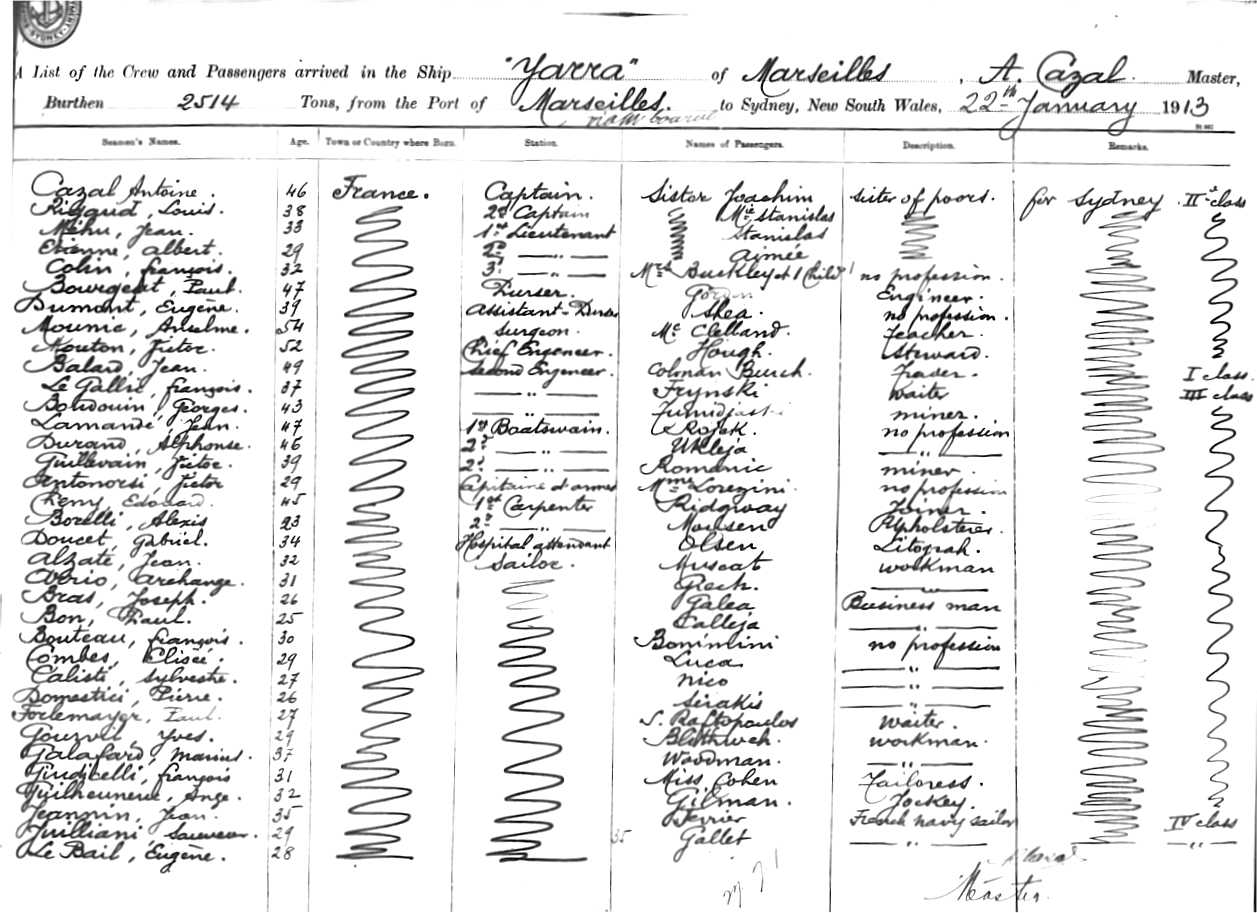 A List of the Crew and Passengers arrived in the Ship "Yarra" of Marseilles, A. Cazal. Master,
Burthen 2514 Tons, from the Port of Marseilles. to Sydney, New South Wales, 22th January 1913
Seamen's Names. Age. Town or Country where Born. Station. Names of Passengers. Description. Remarks.
Cazal Antoine. 46 France. Captain. Sister Joachim sister of poors. for Sydney. IId class
Rigaud, Louis. 38 2d Captain Mie Stanislas
Méhu, Jean. 33 1st Lieutenant Stanislas
Etienne, Albert. 29 2d — " — Aimée
Colin, françois. 32 3d — " — Mrs Buckley et 1 Child no profession.
Bourgeat, Paul. 47 Purser. Engineer.
Dumont, Eugène. 39 Assistant-Purser Shea. no profession.
Mounic, Anselme. 54 Surgeon. Mc Clelland. Teacher.
Mouton, Victor. 52 Chief Engeneer. Hough. Steward.
Balard, Jean. 49 Second Engeneer. Colman Burch. I class.
Le Gallic, françois. 37 — " — Frynski Waiter III class
Boudouin, Georges. 43 — " — miner.
Lamandé, Jean. 47 1st Boatswain. Rojek. no profession
Durand, Alphonse. 46 2d — " — Ukleja — " —
Guillevain, Victor. 39 2d — " — Romanic miner.
Antonorsi, Victor 29 Capitaine d'armes Mme Lorezini. no profession
Remy, Edouard. 45 1st Carpenter Ridgway Joiner.
Borelli, Alexis 23 2d — " — Monsen Upholsterer.
Doucet, Gabriel. 34 Hospital attendant Olsen Litograh.
Alzate, Jean. 32 Sailor. Muscat workman
Archange. 31 Grech. — " —
Bras, Joseph. 26 Galea Business man
Bon, Paul. 25 Calleja — " —
Bouteau, françois. 30 Bonimini no profession
Combes, Elisée. 29 Luca — " —
Calisti, Sylvestre. 27 Nico — " —
Domestici, Pierre. 26 Sirakis — " —
Paul. 27 S. Raftopoulos Waiter.
Gourvil, Yves. 29 workman.
Galafard, Marius. 37 Woodman. — " —
Giudicelli, françois 31 Miss. Cohen Tailoress.
Ange. 32 Gilman. Jockey.
Jeannin, Jean. 35 Perrier French navy sailor IV class
Juilliani Sauveur. 29 35 Gallet — " — — " —
Le Bail, Eugène. 28
Master.